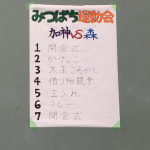 みつばち運動会
加神VS森
1 開会式
2 かけっこ
3 大玉ころがし
4 借り物競争
5 玉入れ
6 リレー
7 閉会式